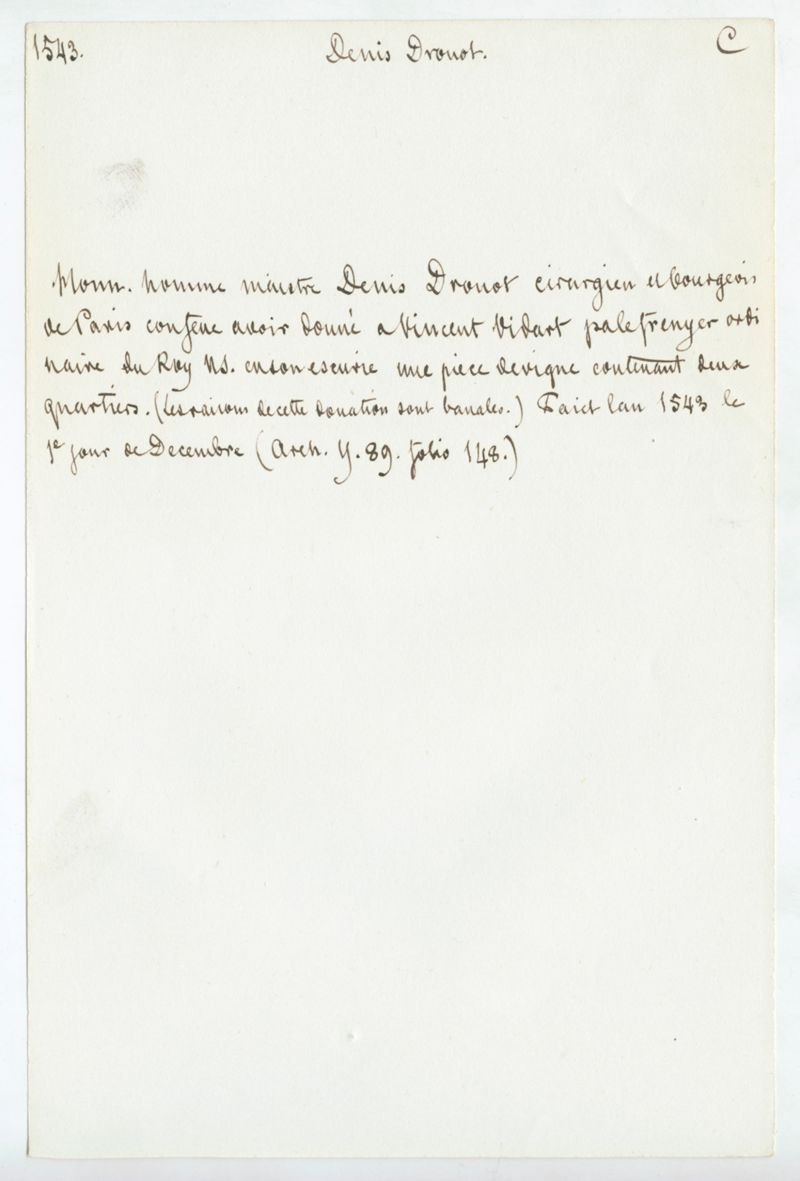 1543. Denis Drouot. C
Honn. homme maistre Denis Drouot cirurgien et bourgeois
de Paris confesse avoir donné a Vincent Vidart palefrenyer ordi
naire du Roy NS. en son escurie une piece de vigne contenant deux
quartiers. (les raisons de cette donation sont banales.) Faict lan 1543 le
1e jour de Decembre (Arch. Y. 89. folio 148.)